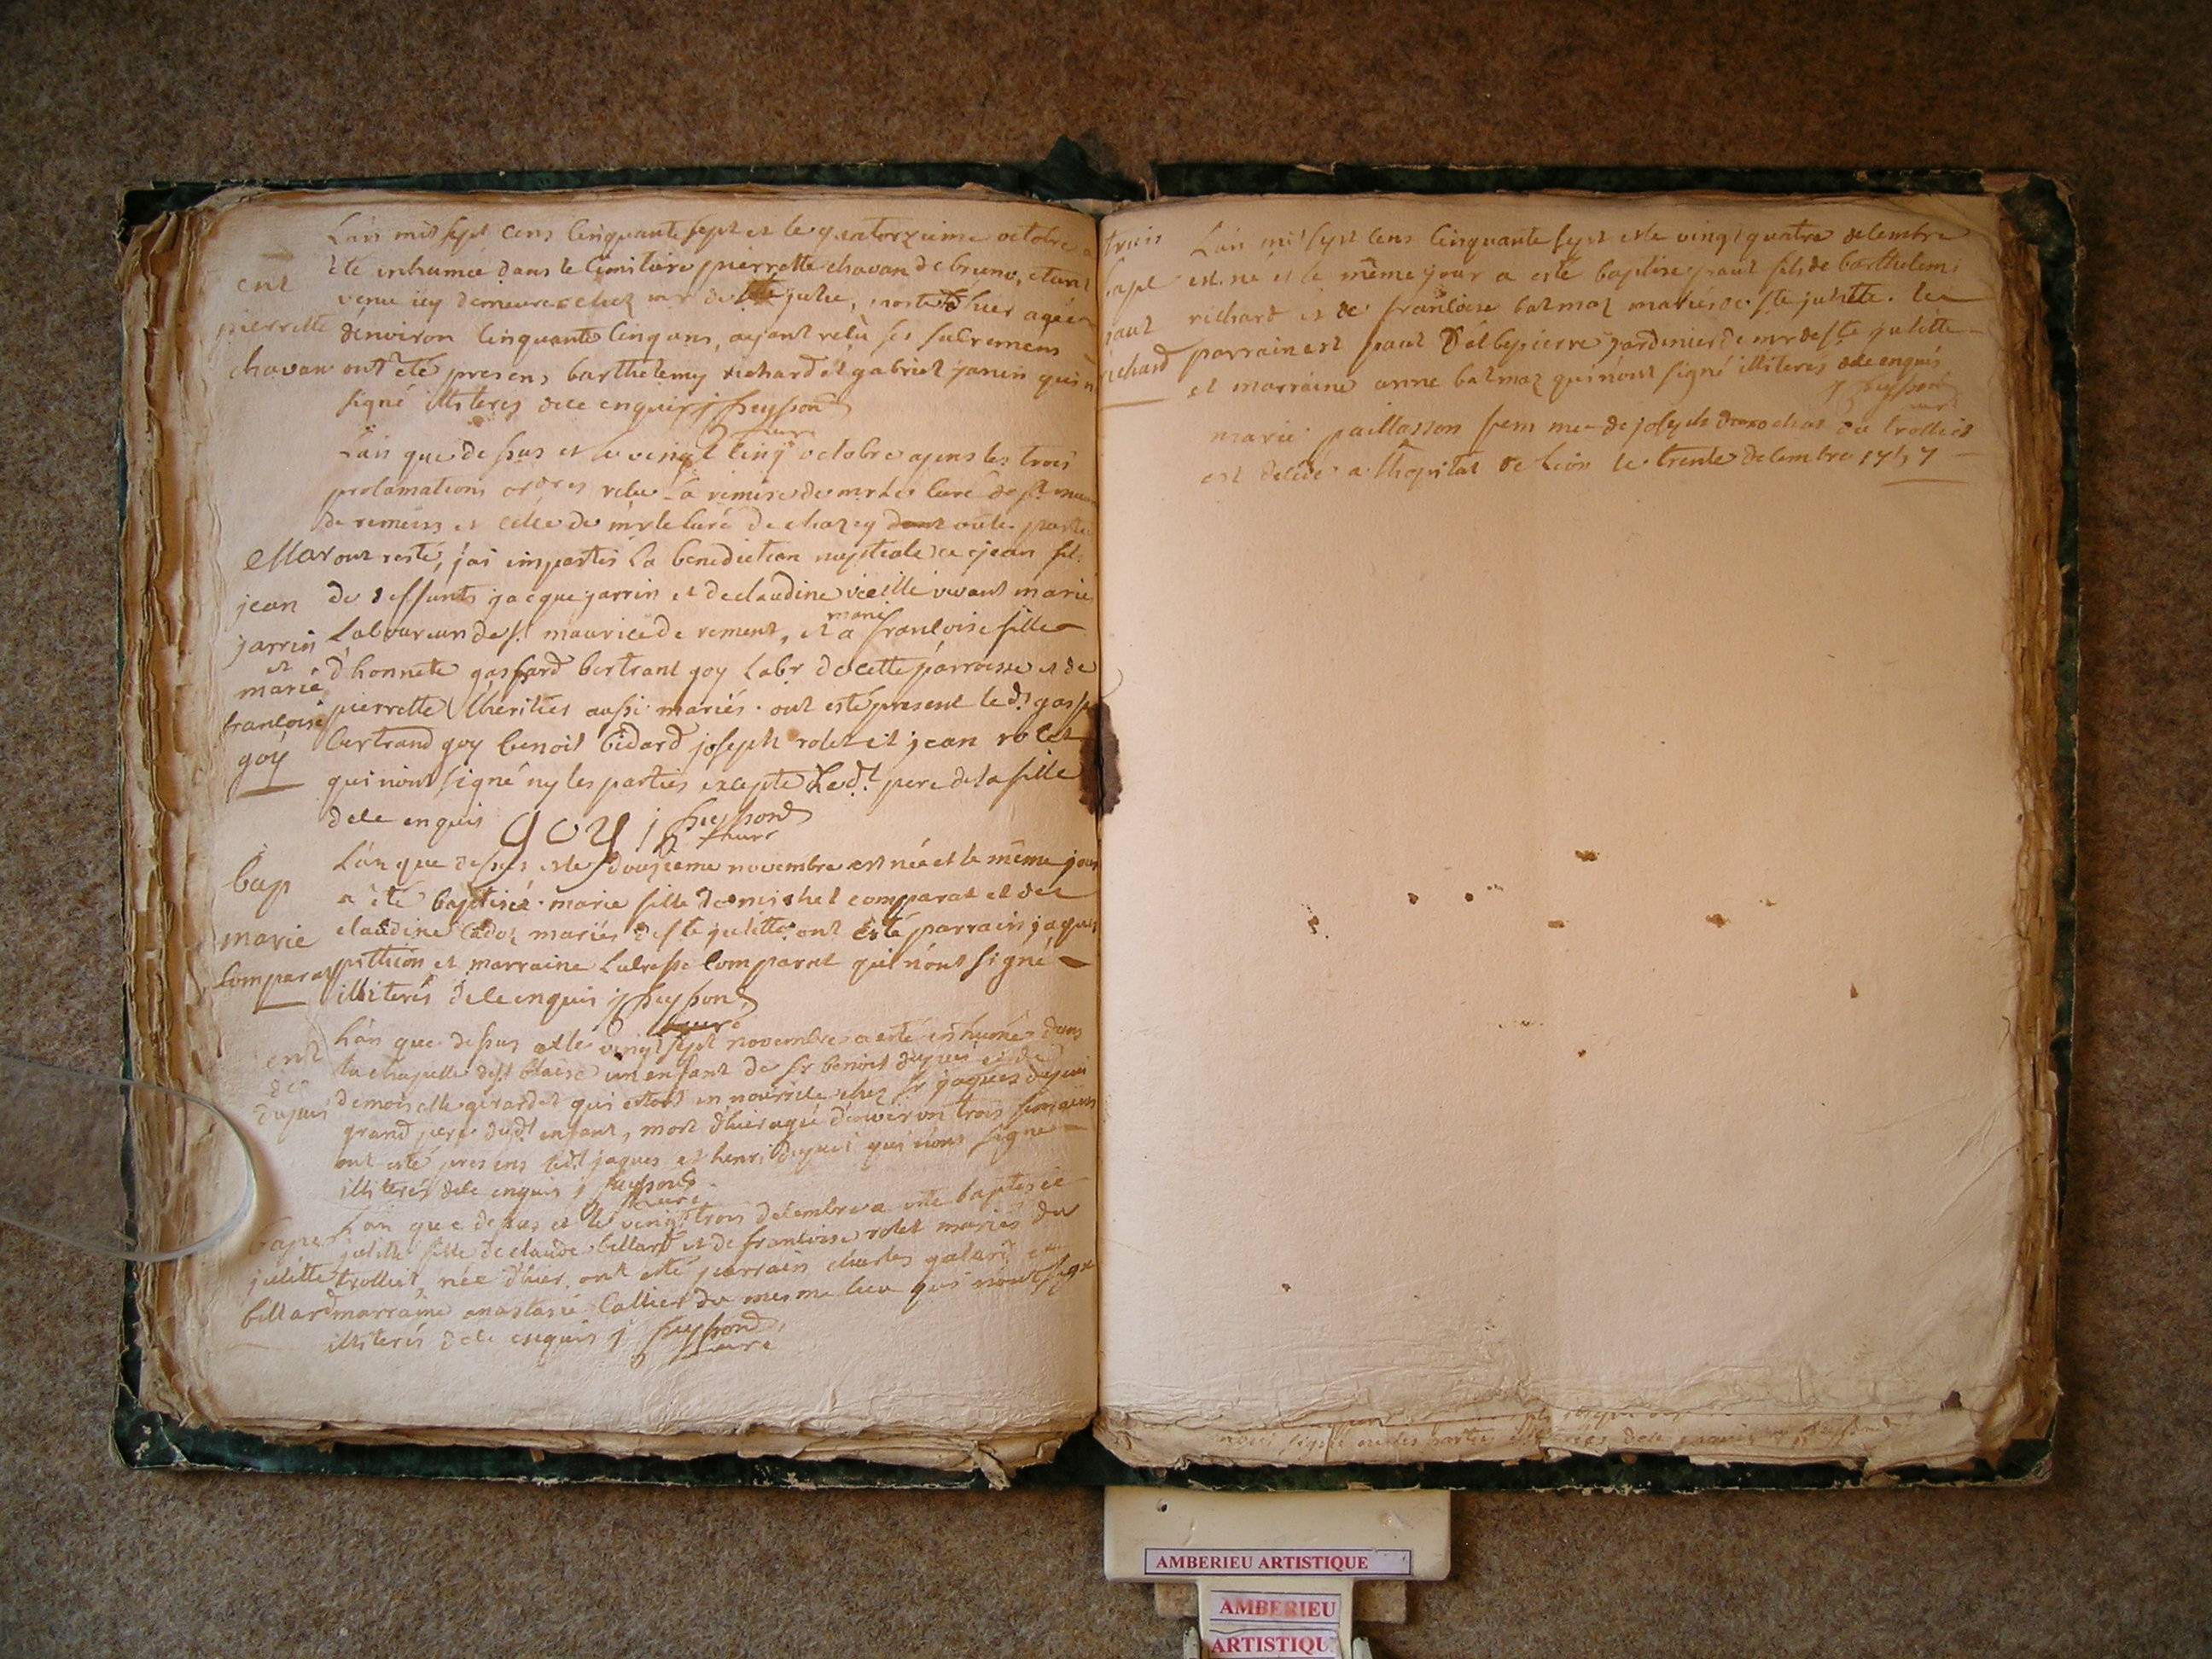 L'an mil sept cens cinquante sept et le quatorzieme octobre a
ent
été inhumée dans le cimitière pierrette chavan de brieno, etant
venue icy demeurer chez mr de ste julie, morte d'hier agée
pierrette
d'environ cinquante cinq ans, ayant reçu ses sacremens
chavan
ont été presens barthelemy richard et gabriel janin qui n
signé illiterés de ce enquis j peysson
curé
L'an que dessus et le vingt cinq octobre apres les trois
proclamations ordres veue la remise de mr le curé de st mau
de remens et celle de mr le curé de chazey dont
Mar
ont resté, j'ai imparti la benediction nuptiale a jean fils
jean
de deffunts jacque jarrin et de claudine vieille vivant mariés
marie
jarrin
laboureur de st maurice de remens, et a francoise fille
et
d'honnete gaspard bertrand goy labr de cette parroisse et de
marie
pierrette lheritier aussi mariés. ont esté present le dt gasp
francoise
bertrand goy benoit bidard joseph rolet et jean rolet
goy
qui n'ont signé ny les parties excepté le dt pere de la fille
de ce enquis goy j peysson
curé
L'an que dessus et le douzieme novembre est née et le même jour
bap
a été baptisée marie fille de michel comparat et de
claudine cadoz mariés de ste julitte ont esté parrain jaques
marie
pithion et marraine lucresse comparat qui n'ont signé
comparat
illiterés de ce enquis j peysson
curé
L'an que dessus et le vingt sept novembre a esté inhumé dans
ent
la chapelle de st blaise un enfant de sr benoit dupuis et de
de
demoiselle girardet qui estoit en nourrice chez sr jaques dupui
dupuis
grand pere dudt enfant, mort d'hier agé d'environ trois semaines
ont esté presens ledt jaques et henri dupuis qui n'ont signé
illiterés de ce enquis j peysson
curé
L'an que dessus et le vingt trois decembre a esté baptisée
bap
julitte fille de claude billard et de francoise rolet mariés du
julitte
trolliet, née d'hier. ont esté parrain charles galard et
billard
marraine anastasie callier du mesme lieu qui n'ont signé
illiterés de ce enquis j peysson
curé
L'an mil sept cens cinquante sept et le vingt quatre decembre
bapt
est né et le même jour a esté baptisé paul fils de barthelemi
richard et de francoise balmaz mariés de ste julitte. le
paul
parrain est paul delbepierre jardinier de mr de ste julitte
richard
et marraine anne balmaz qui n'ont signé illiterés de ce enquis
j peysson
curé
marie paillasson femme de joseph du trolliet
est decedé a l'hopital de lion le trente decembre 1757
AMBERIEU ARTISTIQUE
AMBERIEU
ARTISTIQU